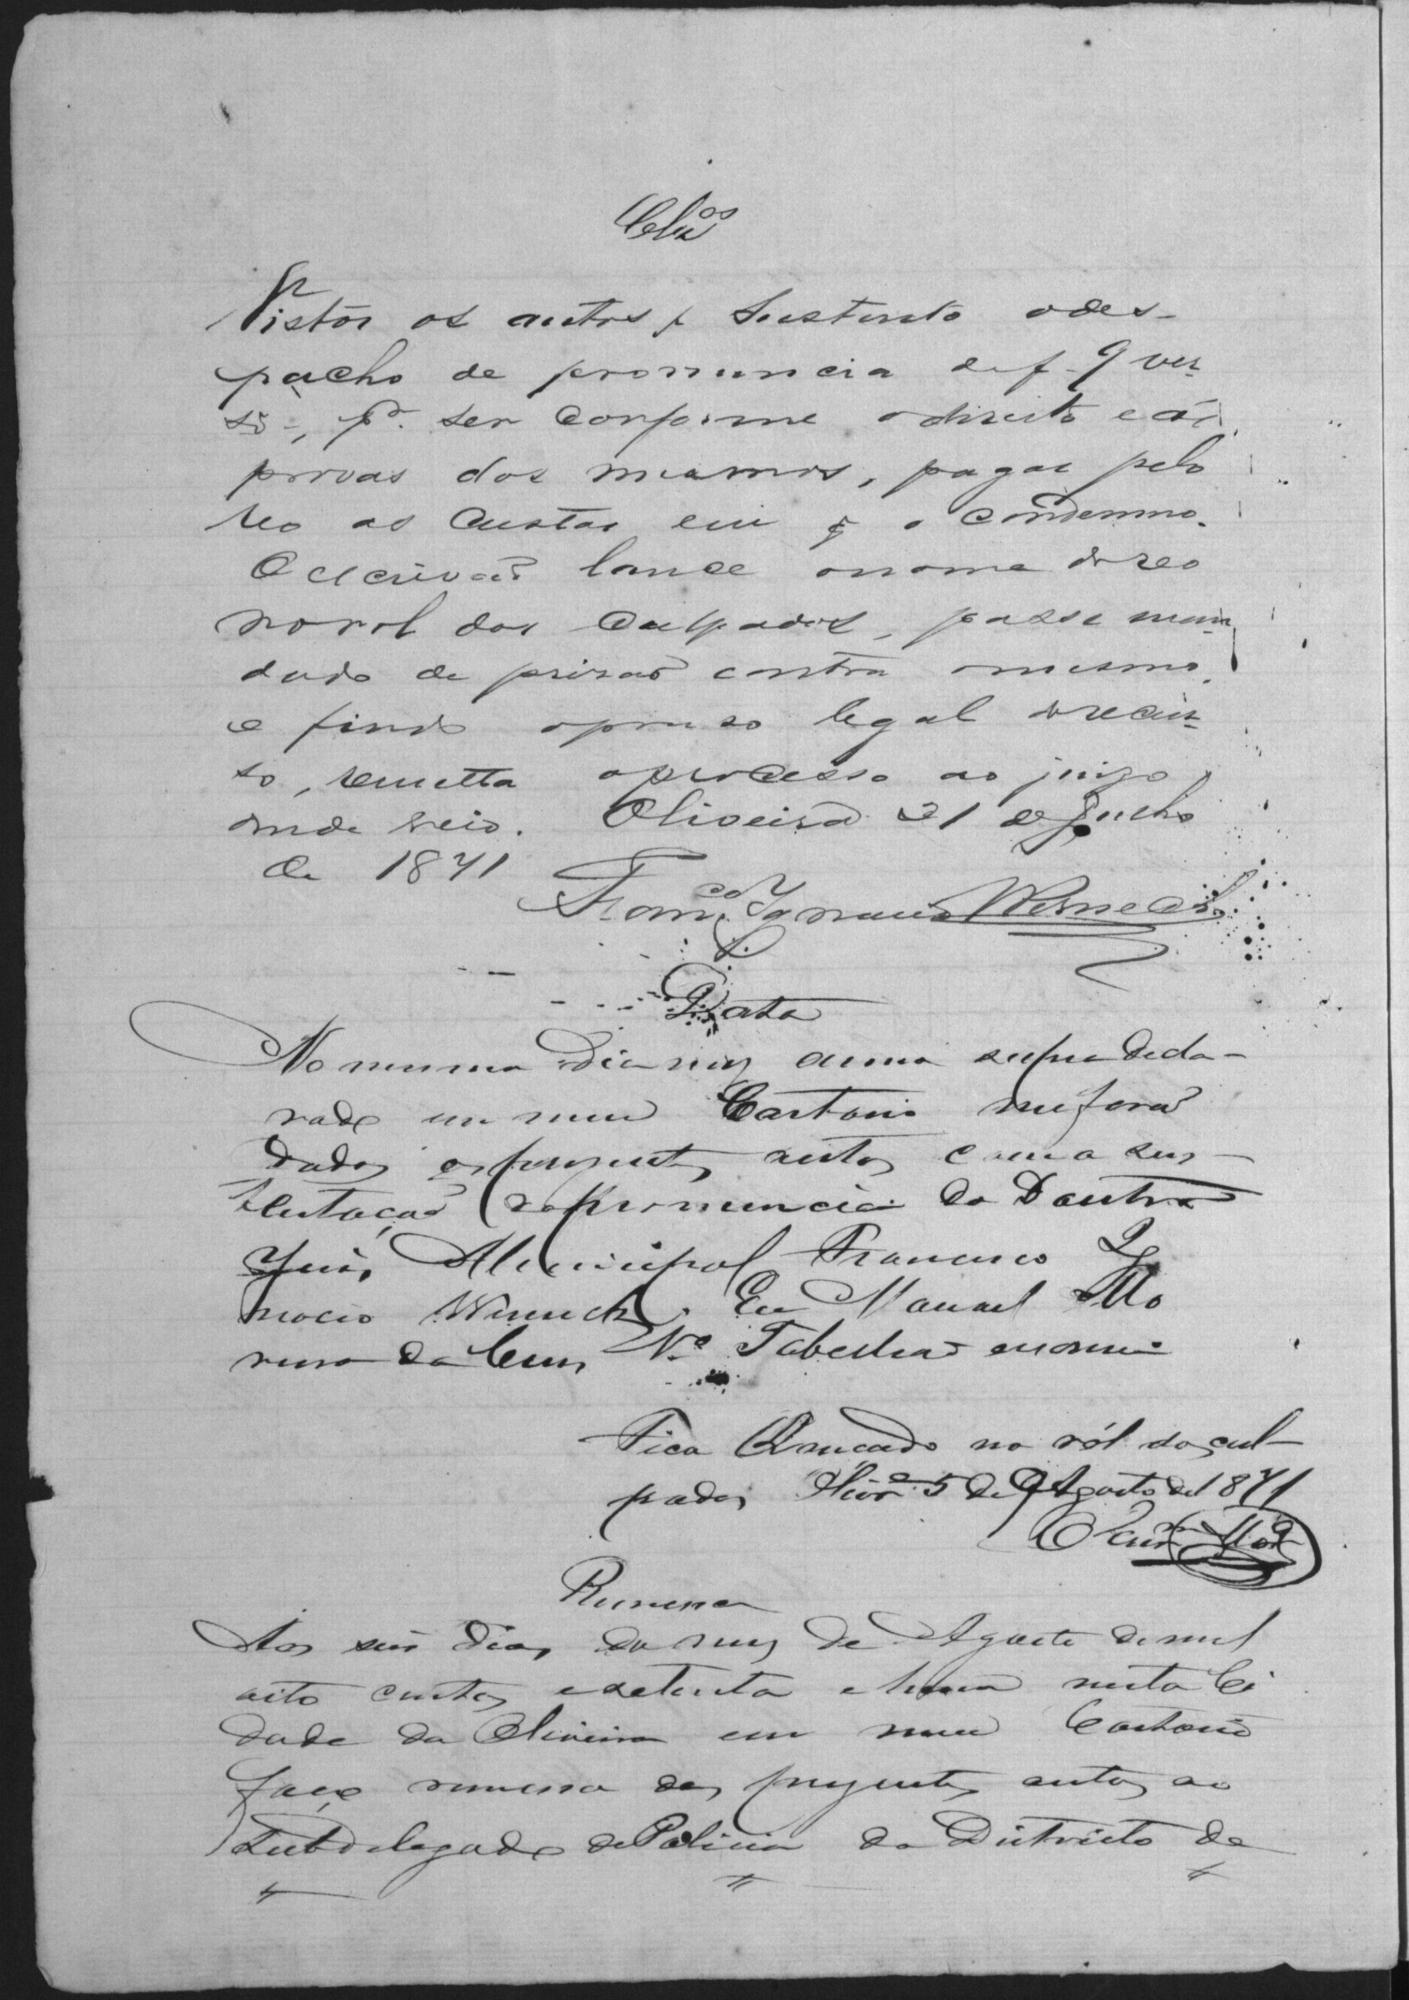 Cl.os
Vistos os autos, sustento odes-
pacho de pronuncia de f. 9 ver-
so, p.r ser conforme odireito e ás
provas dos mesmos, pague pelo
reo as custas em q o condemno.
O escrivaõ lance onome doreo
norol dos culpados, passe man-
dado de prisaõ contra omesmo,
e findo opraso legal dorecur-
so, remetta oprocesso ao juizo
onde veio. Oliveira 21 de Julho
de 1871
Fran.co Ignacio Werneck
Data
No mesmo dia mez anno supra decla-
rado em meu Cartorio me foraõ
dados os presentes autos com a sus-
tentaçaõ da pronuncia do Doutor
Juis Municipal Francisco Ig
nacio Werneck. Eu Manoel Mo
reira da Cruz N.º Tabelliaõ
Fica lançado no ról dos cul-
pados Olivr.a 5 de Agosto de 1871
Remessa
Aos seis dias do mez de Agosto de mil
oito centos esetenta e hum nesta Ci
dade da Oliveira em meu Cartorio
faço remessa dos presentes autos ao
Subdelegado de Policia do Districto de